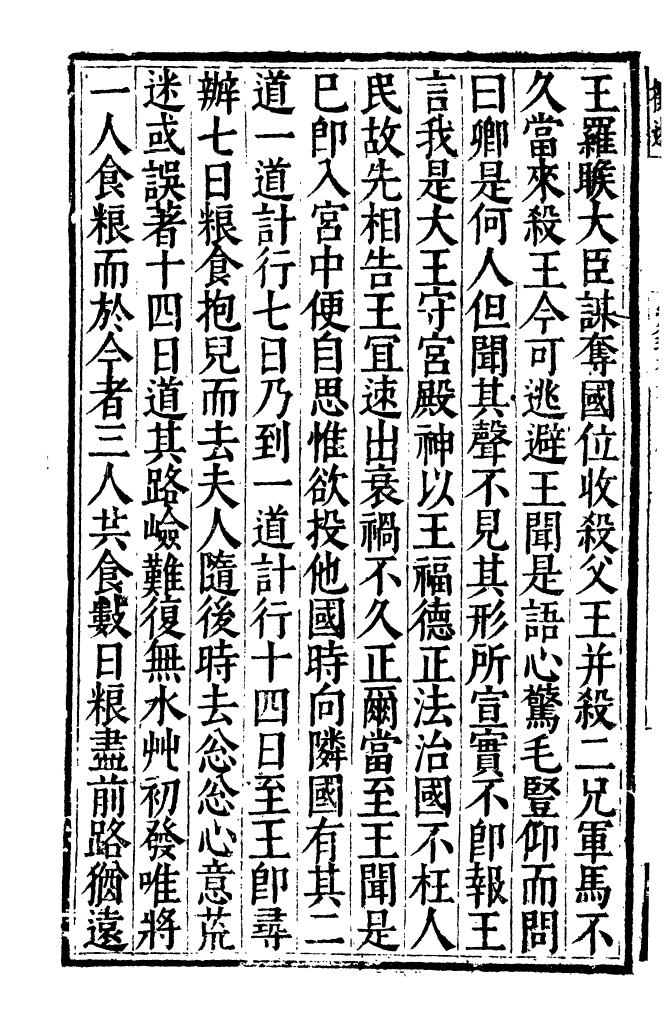 王羅睺大臣謀奪國位收殺父王并殺二兄軍馬不
久當來殺王今可逃避王聞是語心驚毛豎仰而問
曰卿是何人但聞其聲不見其形所宣實不即報王
言我是大王守宮殿神以王福德正法治國不枉人
民故先相告王宜速出衰禍不久正爾當至王聞是
巳即入宮中便自思惟欲投他國時向隣國有其二
道一道計行七日乃到一道計行十四日至王即尋
辦七日粮食抱兒而去夫人隨後時去忩忩心意荒
迷或誤著十四日道其路嶮難復無水艸初發唯將
一人食粮而於今者三人共食數日粮盡前路猶遠